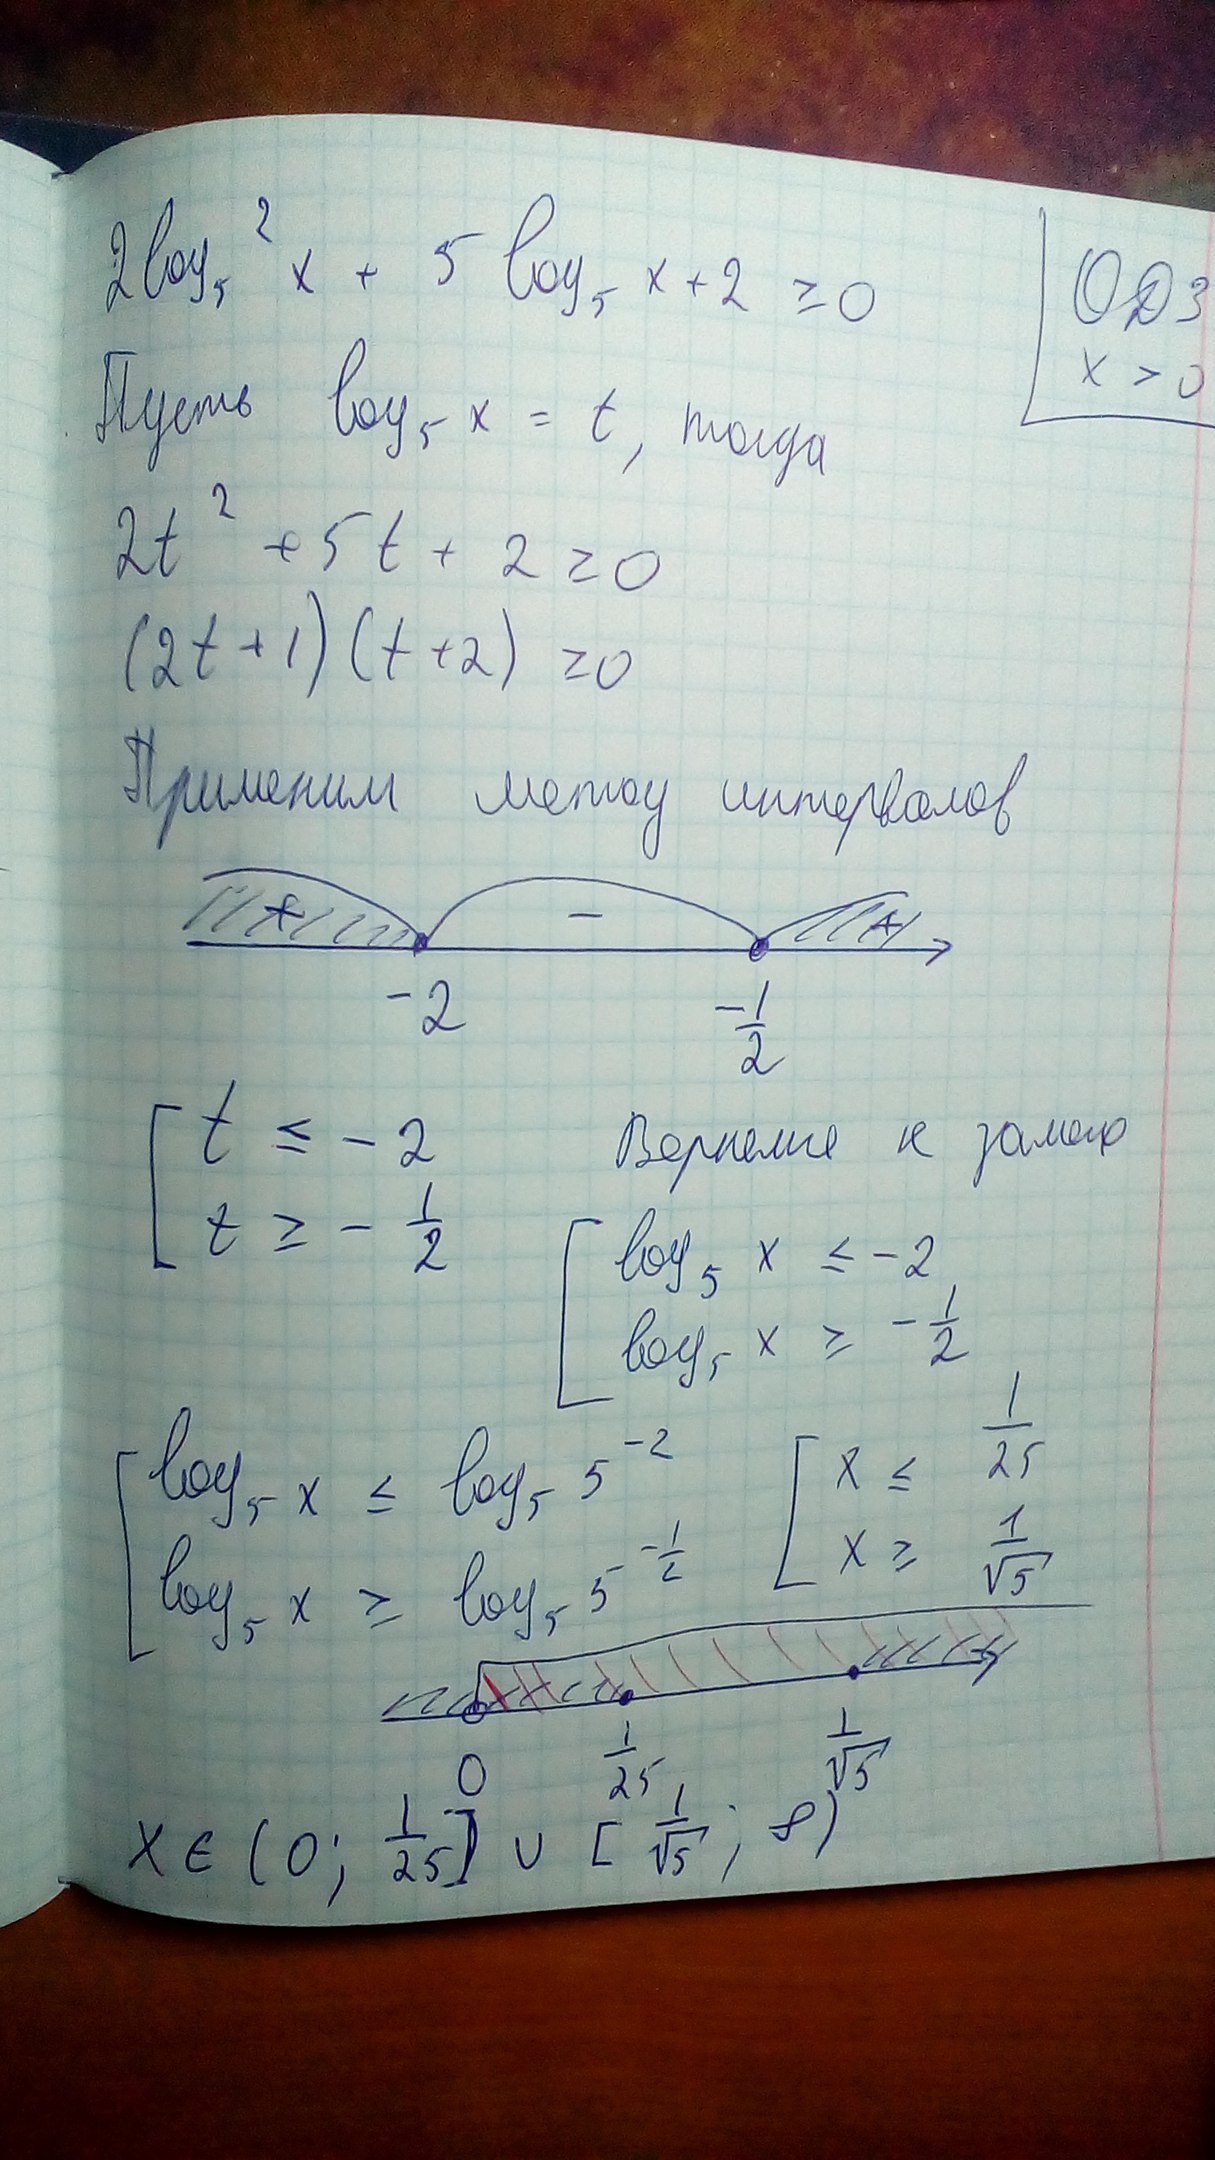 2log₅²x + 5log₅x+2 ≥0
ОДЗ
x > 0
Пусть log₅x = t, тогда
2t² + 5t + 2 ≥0
(2t+1)(t+2) ≥0
Применим метод интервалов
+ − +
-2 -1/2
[ t ≤ -2
t ≥ -1/2
Вернемся к замене
[ log₅ x ≤ -2
log₅ x ≥ -1/2
[ log₅ x ≤ log₅ 5⁻²
log₅ x ≥ log₅ 5^(-1/2)
[ x ≤ 1/25
x ≥ 1/√5
0 1/25 1/√5
x ∈ (0; 1/25] ∪ [1/√5; ∞)